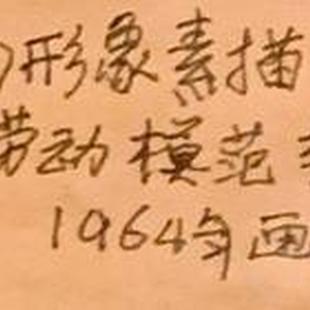 形象素描
劳动模范
1964年画